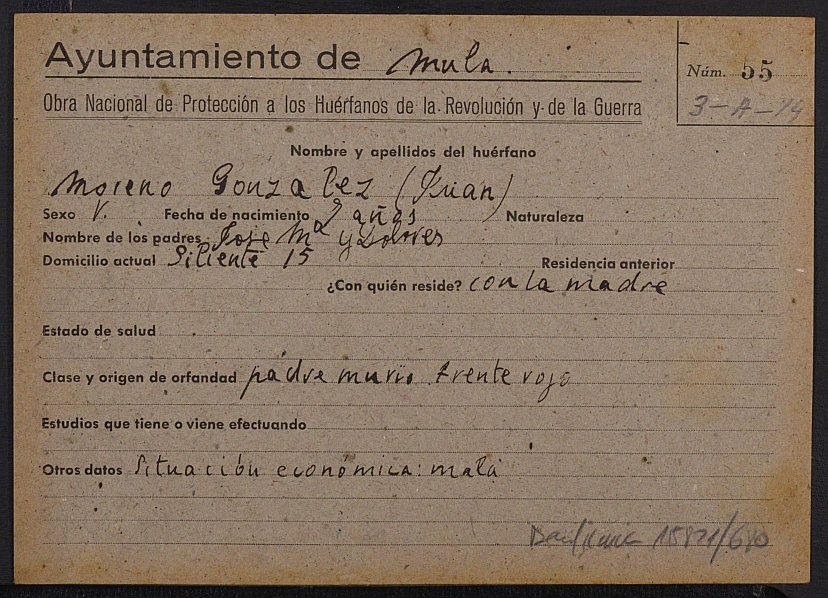 Ayuntamiento de Mula.
Núm. 55
3-A-14
Obra Nacional de Protección a los Huérfanos de la Revolución y de la Guerra
Nombre y apellidos del huérfano
Moreno Gonzalez (Juan)
Sexo V. Fecha de nacimiento 9 años Naturaleza
Nombre de los padres Jose Mª y Dolores
Domicilio actual 15 Residencia anterior
¿Con quién reside? con la madre
Estado de salud
Clase y origen de orfandad padre murio frente rojo
Estudios que tiene o viene efectuando
Otros datos Situación económica: mala